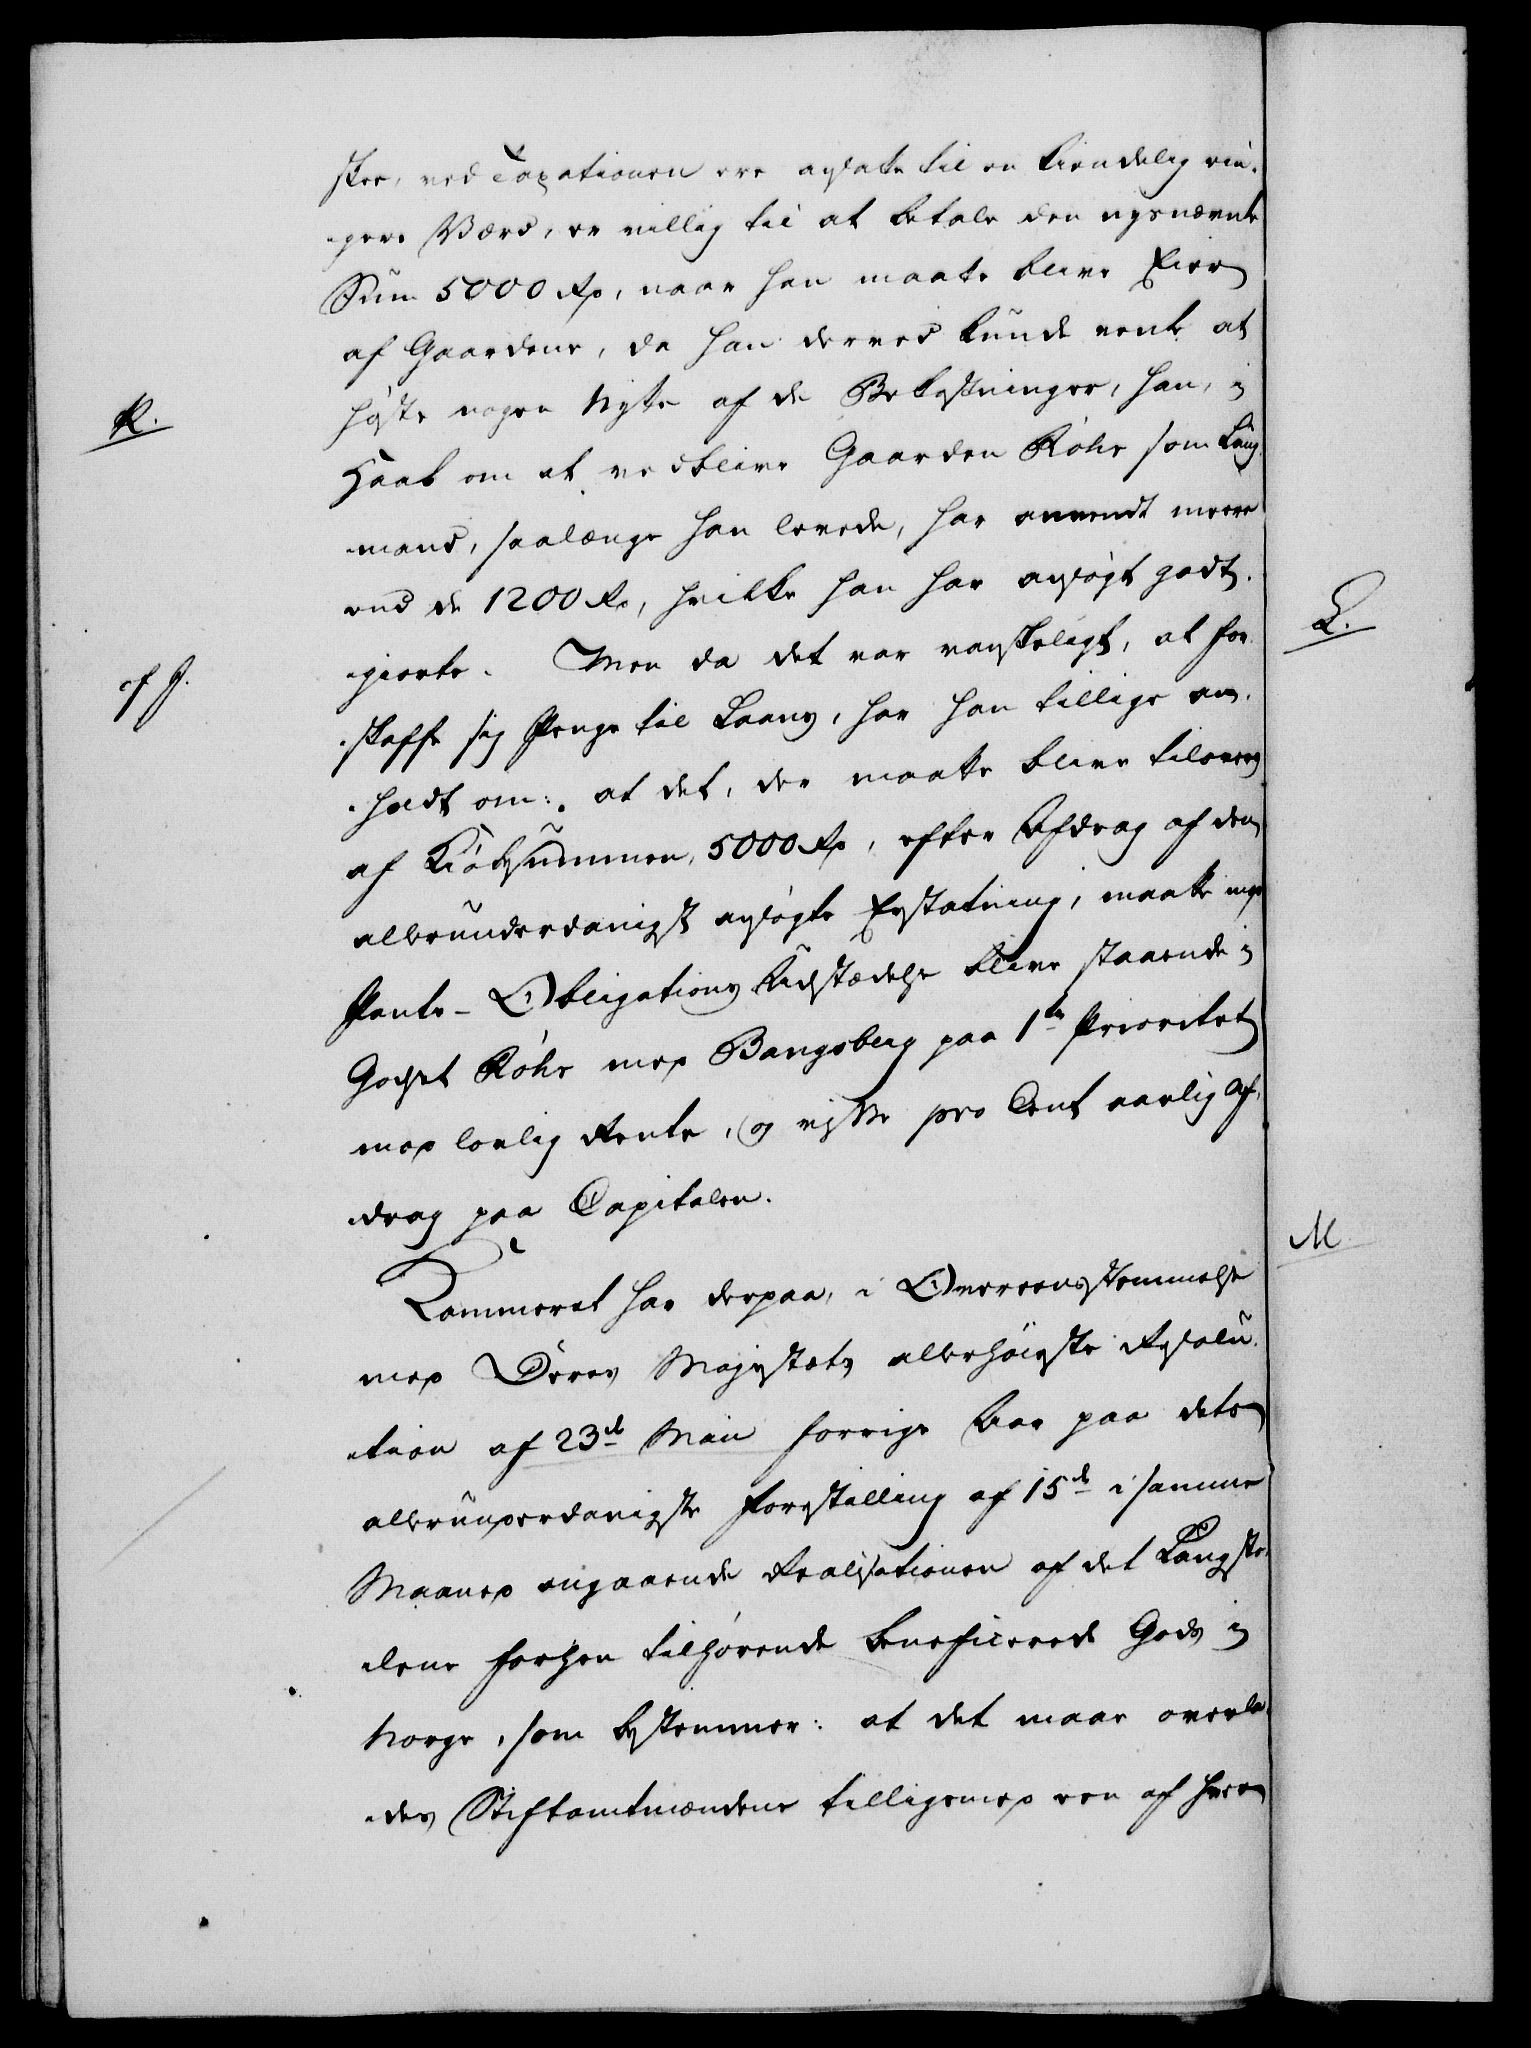 sker, ved Taxationen ere ansatte til en kiendelig rin-
gere Værd, er villig til at betale den nysnævnte
Sum 5000 Rd, naar han maatte blive Eier
af Gaardene, da han derved kunde vente at
høste nogen Nytte af de Bekostninger, han, i
K.
Haab om at vedblive Gaarden Röhr som Leilig-
mand, saalænge han levede, har anvendt meere
end de 1200 Rd, hvilke han har ansøgt godt-
L.
giorte. Men da det var vanskeligt, at for-
cf J.
skaffe sig Penge til Laans, har han tillige an-
holdt om: at det, der maatte blive tilovers
af Kiöbesummen, 5000 Rd, efter Afdrag af den
allerunderdanigst ansøgte Erstatning, maatte mod
Pante-Obligations Udstædelse blive staaende i
Godset Röhr med Bangsberg paa 1te Prioritet
med lovlig Rente, og visse pro Cent aarlig Af-
drag paa Capitalen.
M
Kammeret har derpaa, i Overeensstemmelse
med Deres Majestæts allerhöieste Resolu-
tion af 23de Maii forrige Aar paa dets
allerunderdanigste Forestilling af 15de i samme
Maaned angaaende Realisationen af det
forhen tilhørende beneficerede Gods i
Norge, som bestemmer: at det maae overla-
des Stiftamtmændene tilligemed een af hver